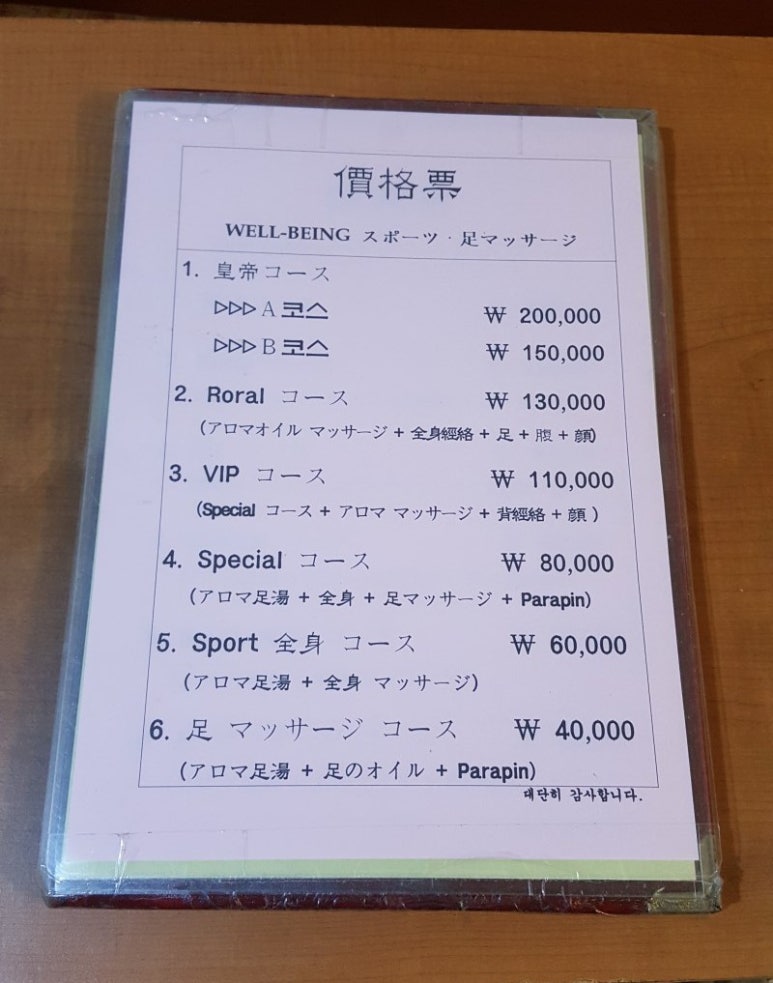 價格票
WELL-BEING スポーツ · 足マッサージ
1. 皇帝コース
▷▷▷ A 코스 ₩ 200,000
▷▷▷ B 코스 ₩ 150,000
2. Roral コース ₩ 130,000
(アロマオイル マッサージ + 全身經絡 + 足 + 腹 + 顔)
3. VIP コース ₩ 110,000
(Special コース + アロマ マッサージ + 背經絡 + 顔 )
4. Special コース ₩ 80,000
(アロマ足湯 + 全身 + 足マッサージ + Parapin)
5. Sport 全身 コース ₩ 60,000
(アロマ足湯 + 全身 マッサージ)
6. 足 マッサージ コース ₩ 40,000
(アロマ足湯 + 足のオイル + Parapin)
대단히 감사합니다.